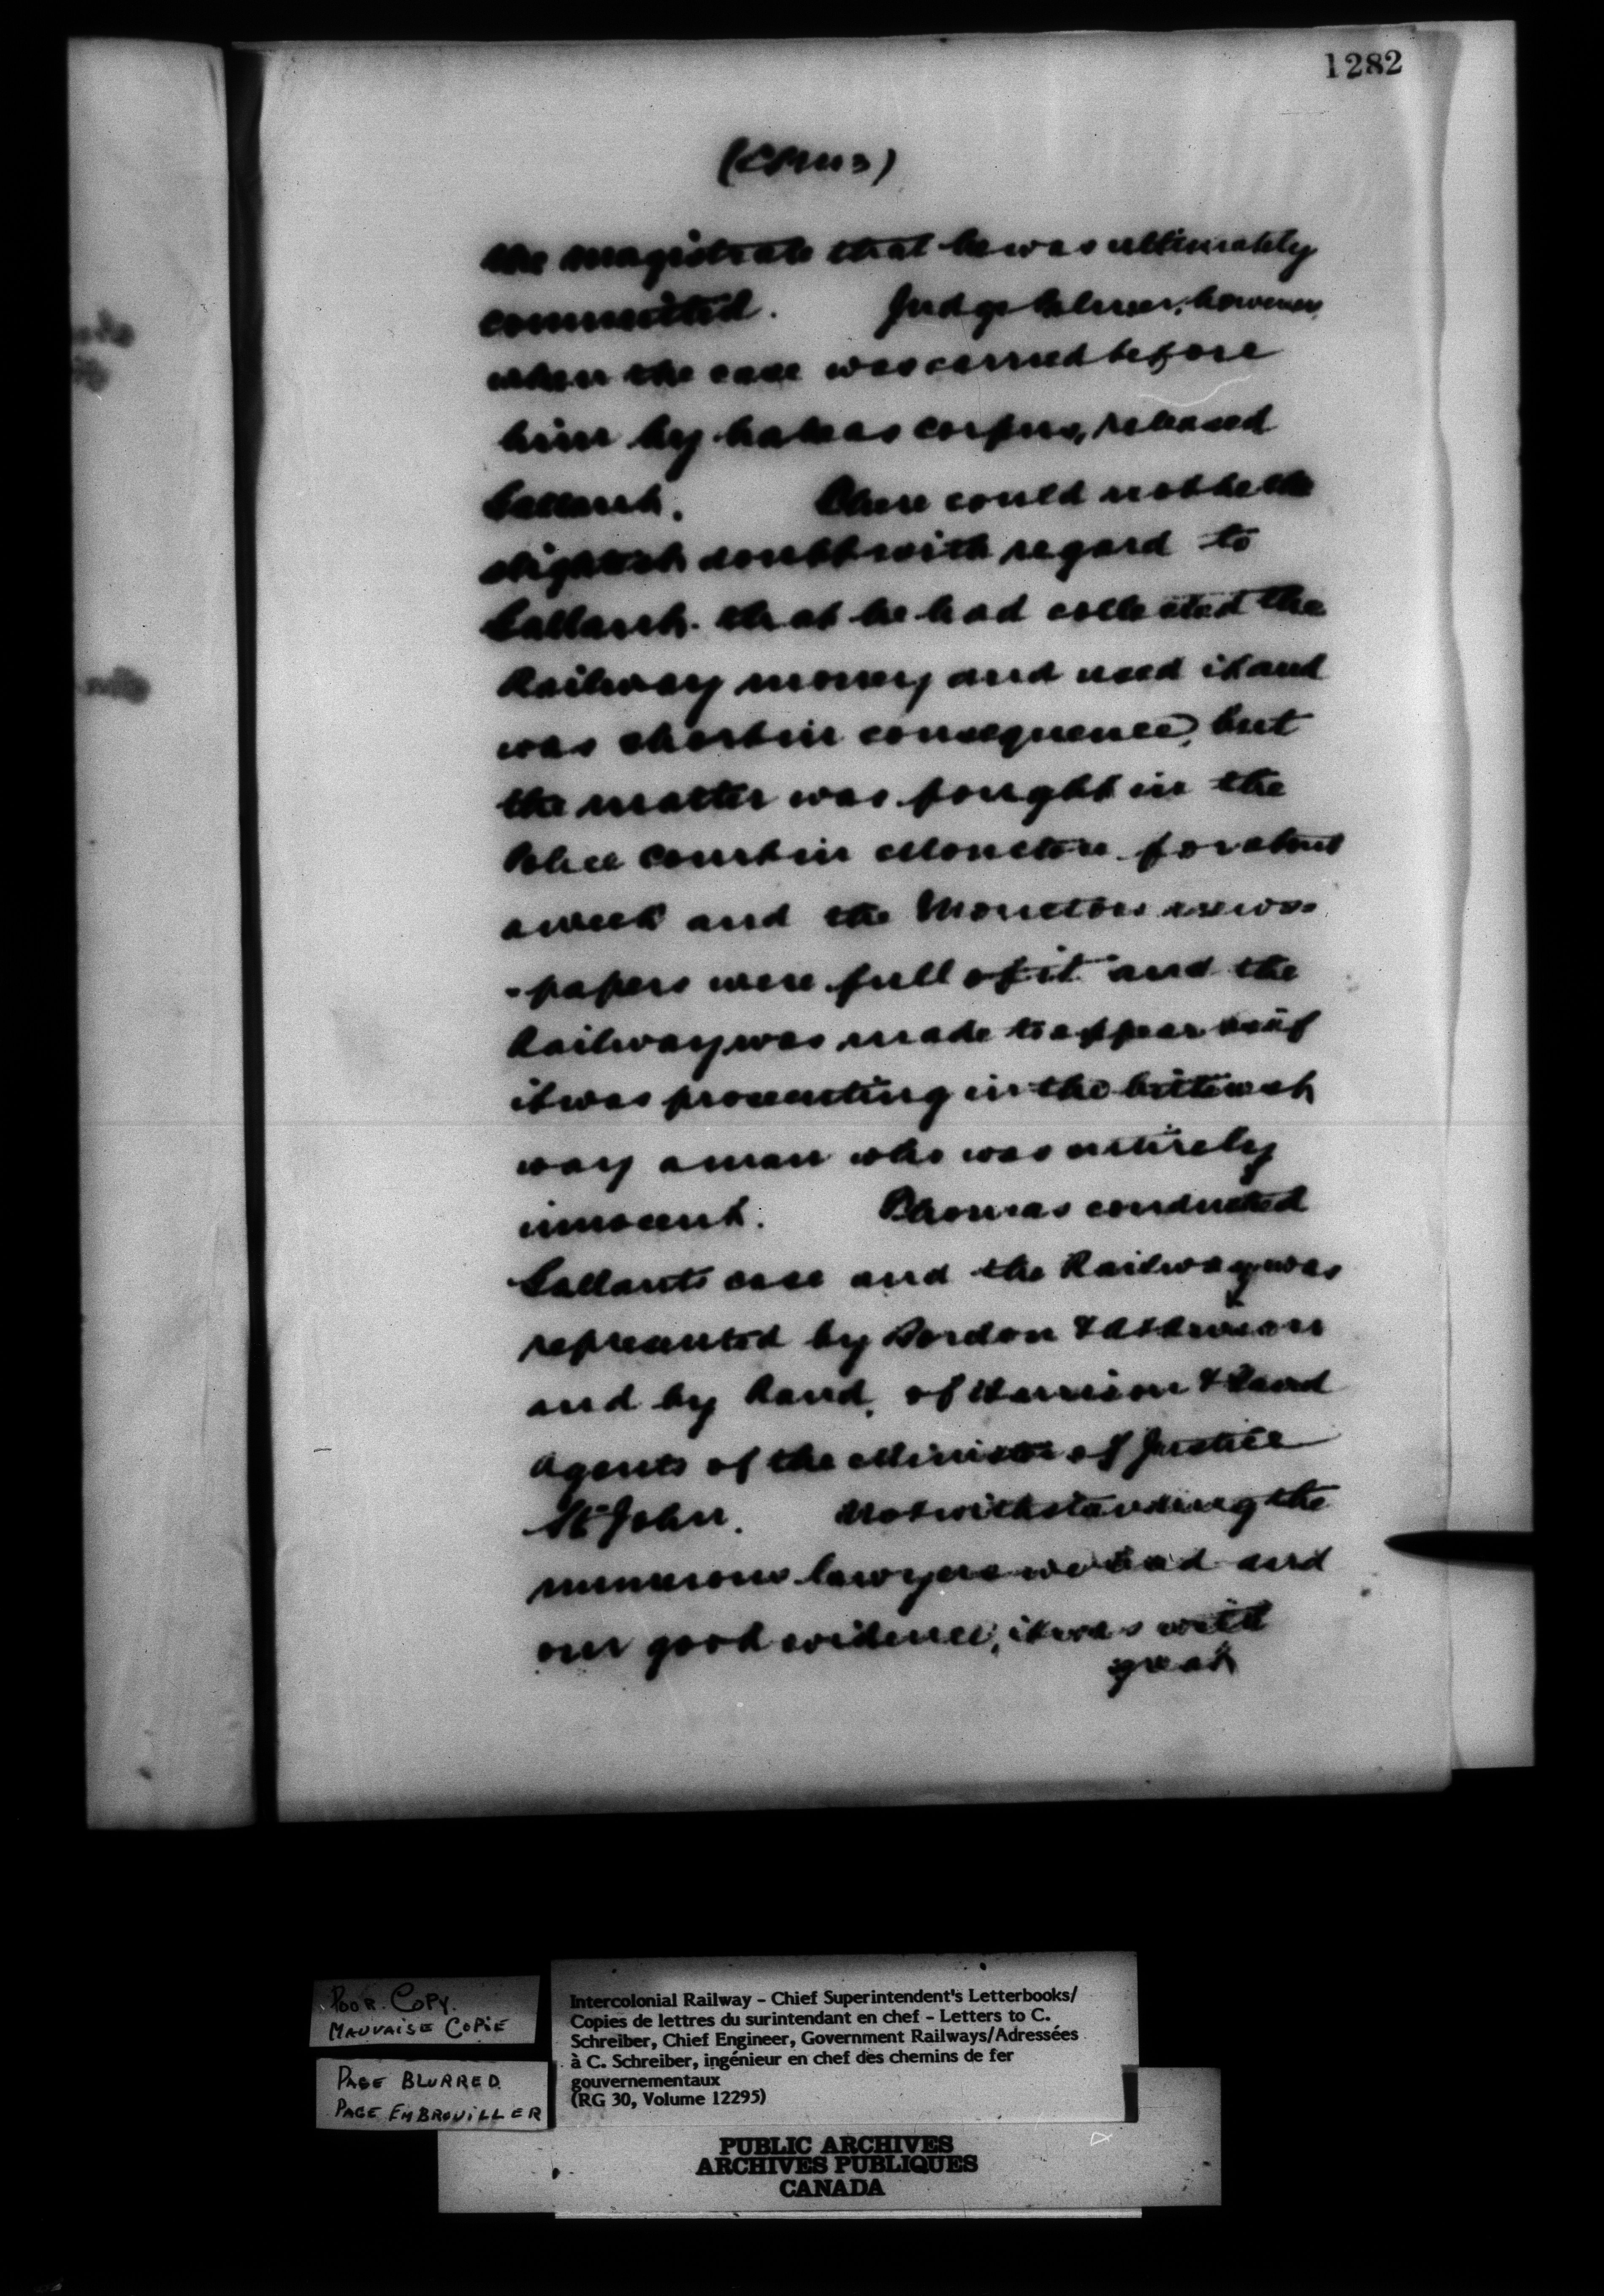 1282
the magistrate that he was ultimately
committed. Judge however,
when the case was carried before
him by habeas corpus, released
Gallant. There could not be the
slightest doubt with regard to
Gallant. that he had collected the
Railway money and used it and
was short in consequence, but
the matter was fought in the
Police Court in Moncton for about
a week and the Moncton news
-papers were full of it and the
Railway was made to appear as if
it was prosecuting in the bitterest
way a man who was entirely
innocent. Thomas conducted
Gallants case and the Railway was
represented by Borden & Atkinson
and by Rand, of Harrison & Rand
Agents of the Minister of Justice
St John. Notwithstanding the
numerous lawyers we had and
our good evidence, it was with
great
POOR COPY.
MAUVAISE COPIE
PAGE BLURRED
PAGE EMBROUILLER
Intercolonial Railway – Chief Superintendent's Letterbooks/
Copies de lettres du surintendant en chef – Letters to C.
Schreiber, Chief Engineer, Government Railways/Adressées
à C. Schreiber, ingénieur en chef des chemins de fer
gouvernementaux
(RG 30, Volume 12295)
PUBLIC ARCHIVES
ARCHIVES PUBLIQUES
CANADA